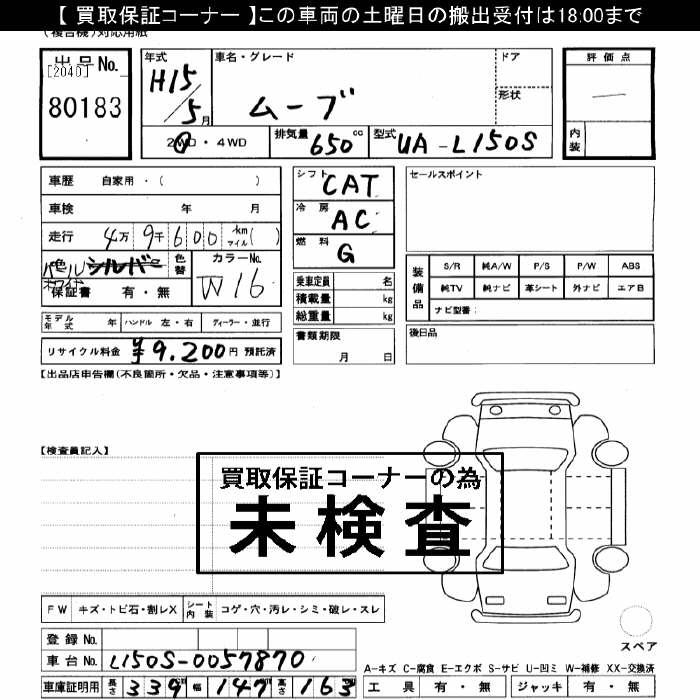 【 買取保証コーナー 】この車両の土曜日の搬出受付は18:00まで
(複合機)対応用紙
出品No.
[2040]
80183
年式
H15/5月
車名・グレード
ムーブ
ドア
形状
評価点
内装
2WD・4WD
排気量 650 cc
型式 UA-L150S
車歴 自家用・( )
車検 年 月
走行 4万9千600 km マイル( )
色 シルバー 色替
パールホワイト
カラーNo. W16
保証書 有・無
モデル年式 年 ハンドル 左・右 ディーラー・並行
リサイクル料金 ¥9.200円 預託済
シフト CAT
冷房 AC
燃料 G
乗車定員 名
積載量 kg
総重量 kg
書類期限
月 日
セールスポイント
装備品
S/R 純A/W P/S P/W ABS
純TV 純ナビ 革シート 外ナビ エアB
ナビ型番:
後日品
【出品店申告欄(不良箇所・欠品・注意事項等)】
【検査員記入】
買取保証コーナーの為
未検査
FW キズ・トビ石・割レX シート内装 コゲ・穴・汚レ・シミ・破レ・スレ
登録No.
車台No. L150S-0057870
車庫証明用 長さ 339 幅 147 高さ 163
スペア
A-キズ C-腐食 E-エクボ S-サビ U-凹ミ W-補修 XX-交換済
工具 有・無 ジャッキ 有・無